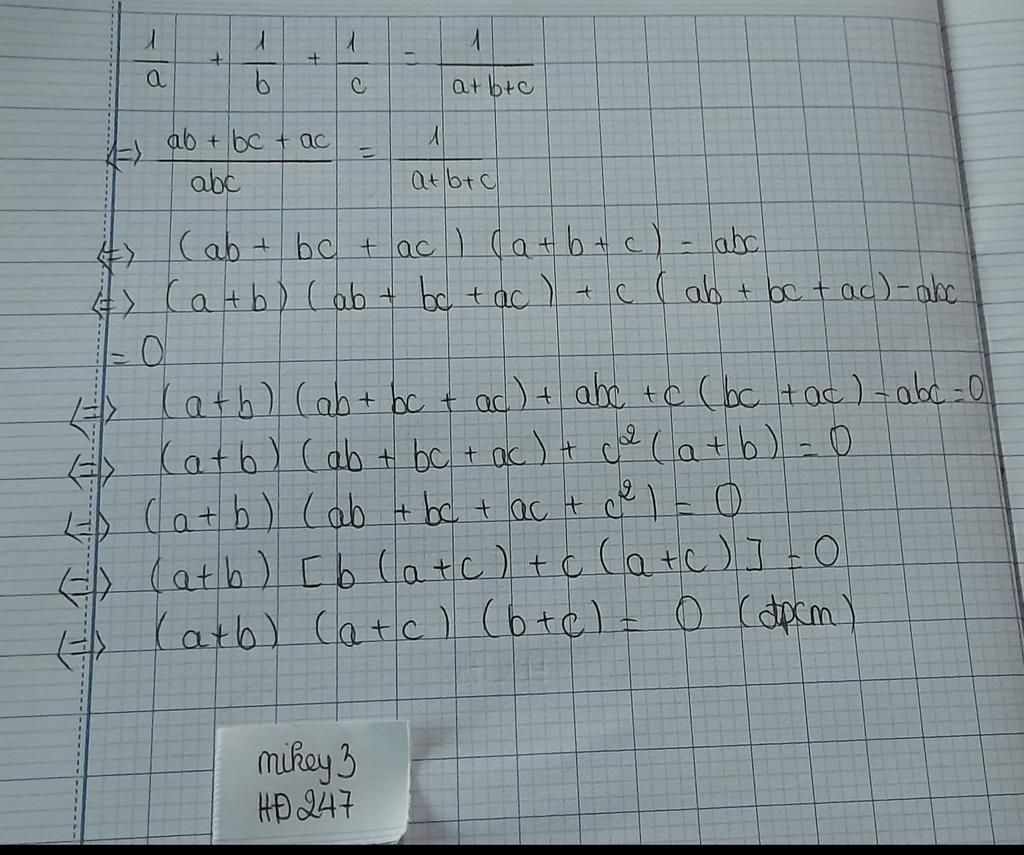 1/a + 1/b + 1/c = 1/(a+b+c)
<=> (ab + bc + ac)/abc = 1/(a+b+c)
<=> (ab + bc + ac) (a+b+c) = abc
<=> (a+b) (ab + bc + ac) + c (ab + bc + ac) - abc
= 0
<=> (a+b) (ab + bc + ac) + abc + c (bc + ac) - abc = 0
<=> (a+b) (ab + bc + ac) + c² (a+b) = 0
<=> (a+b) (ab + bc + ac + c²) = 0
<=> (a+b) [b (a+c) + c (a+c)] = 0
<=> (a+b) (a+c) (b+c) = 0 (đpcm)
mikey3
HĐ247